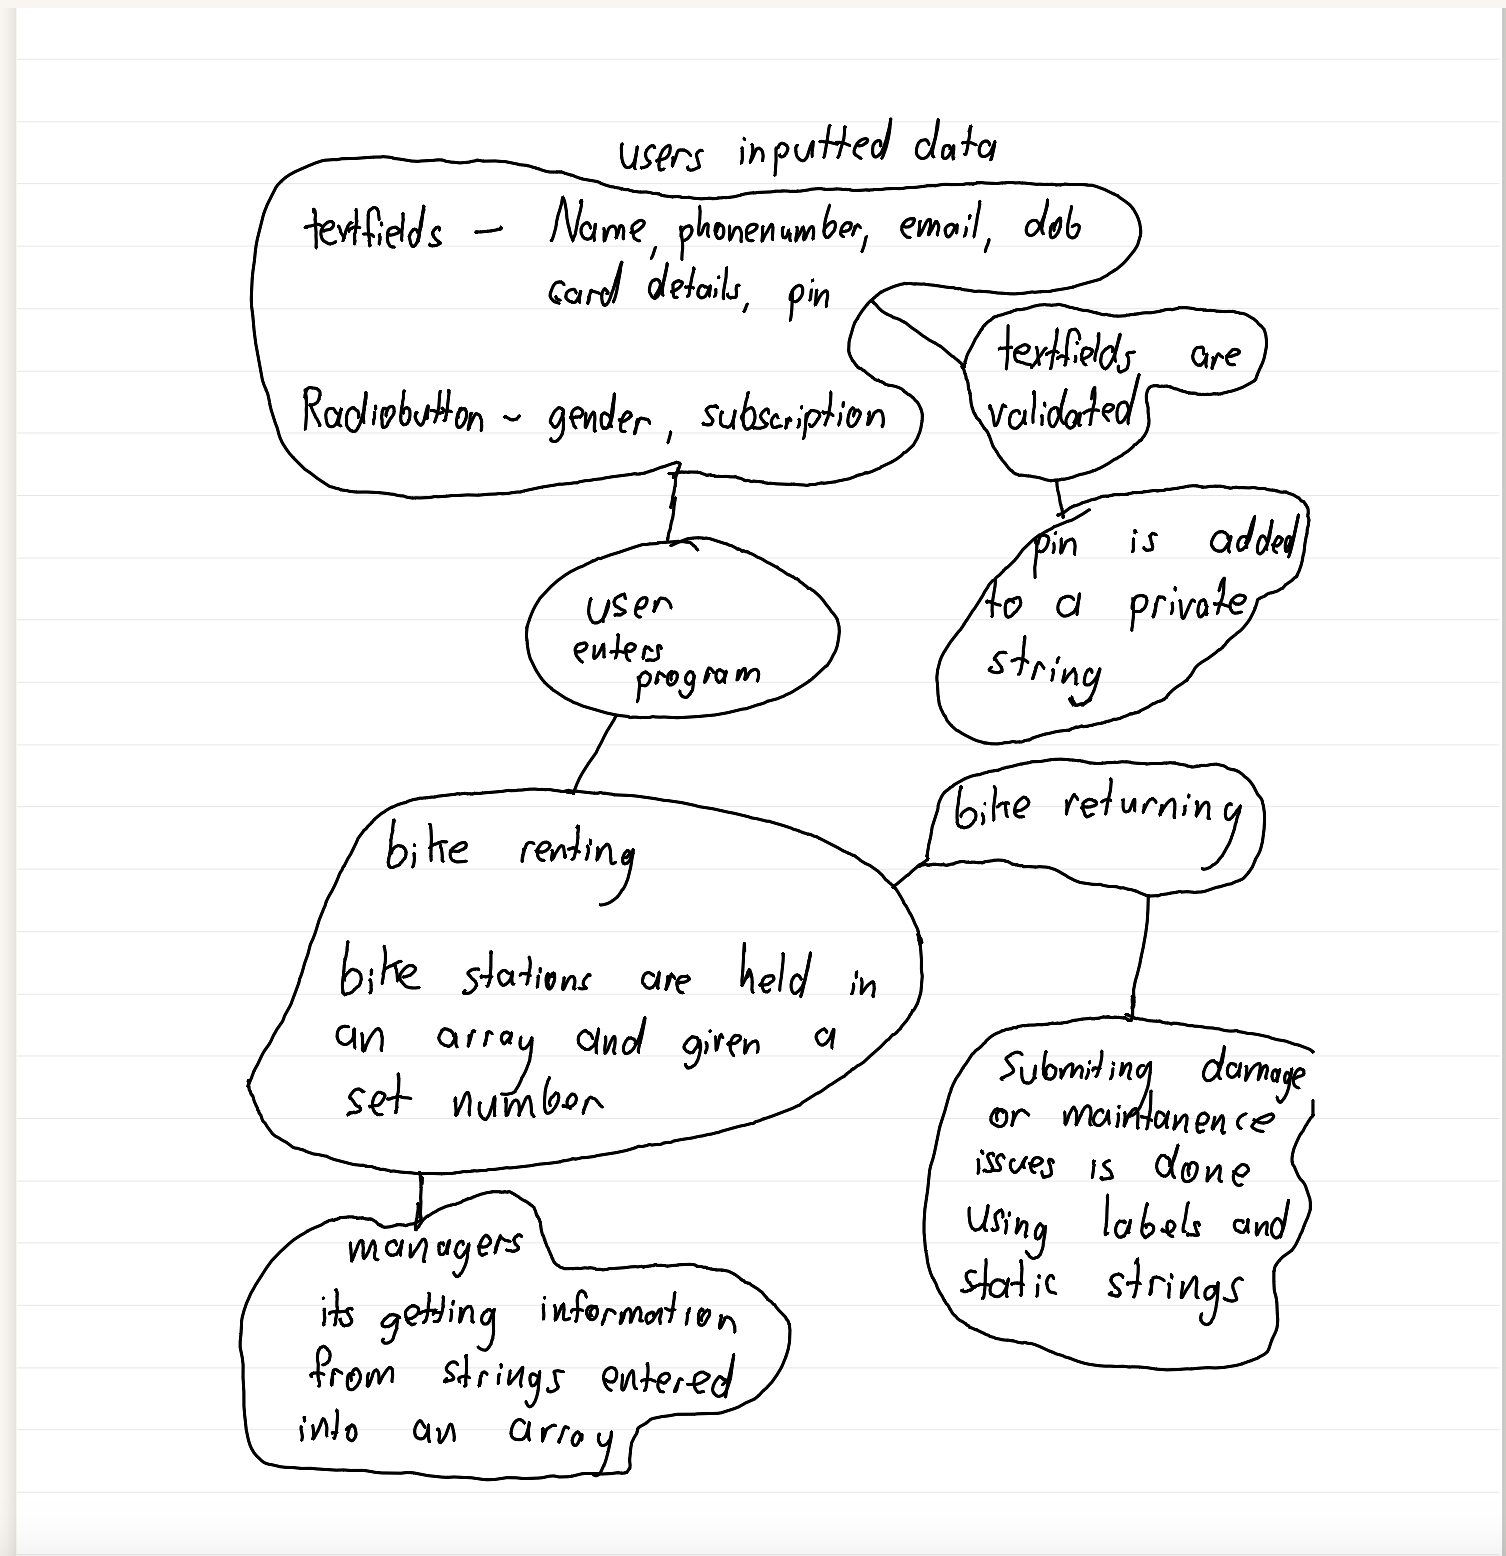 users inputted data
textfields - Name, phonenumber, email, dob
card details, pin
Radiobutton - gender, subscription
textfields are
validated
pin is added
to a private
string
user
enters
program
bike renting
bike stations are held in
an array and given a
set number
bike returning
Submiting damage
or maintanence
issues is done
using labels and
static strings
managers
its getting information
from strings entered
into an array